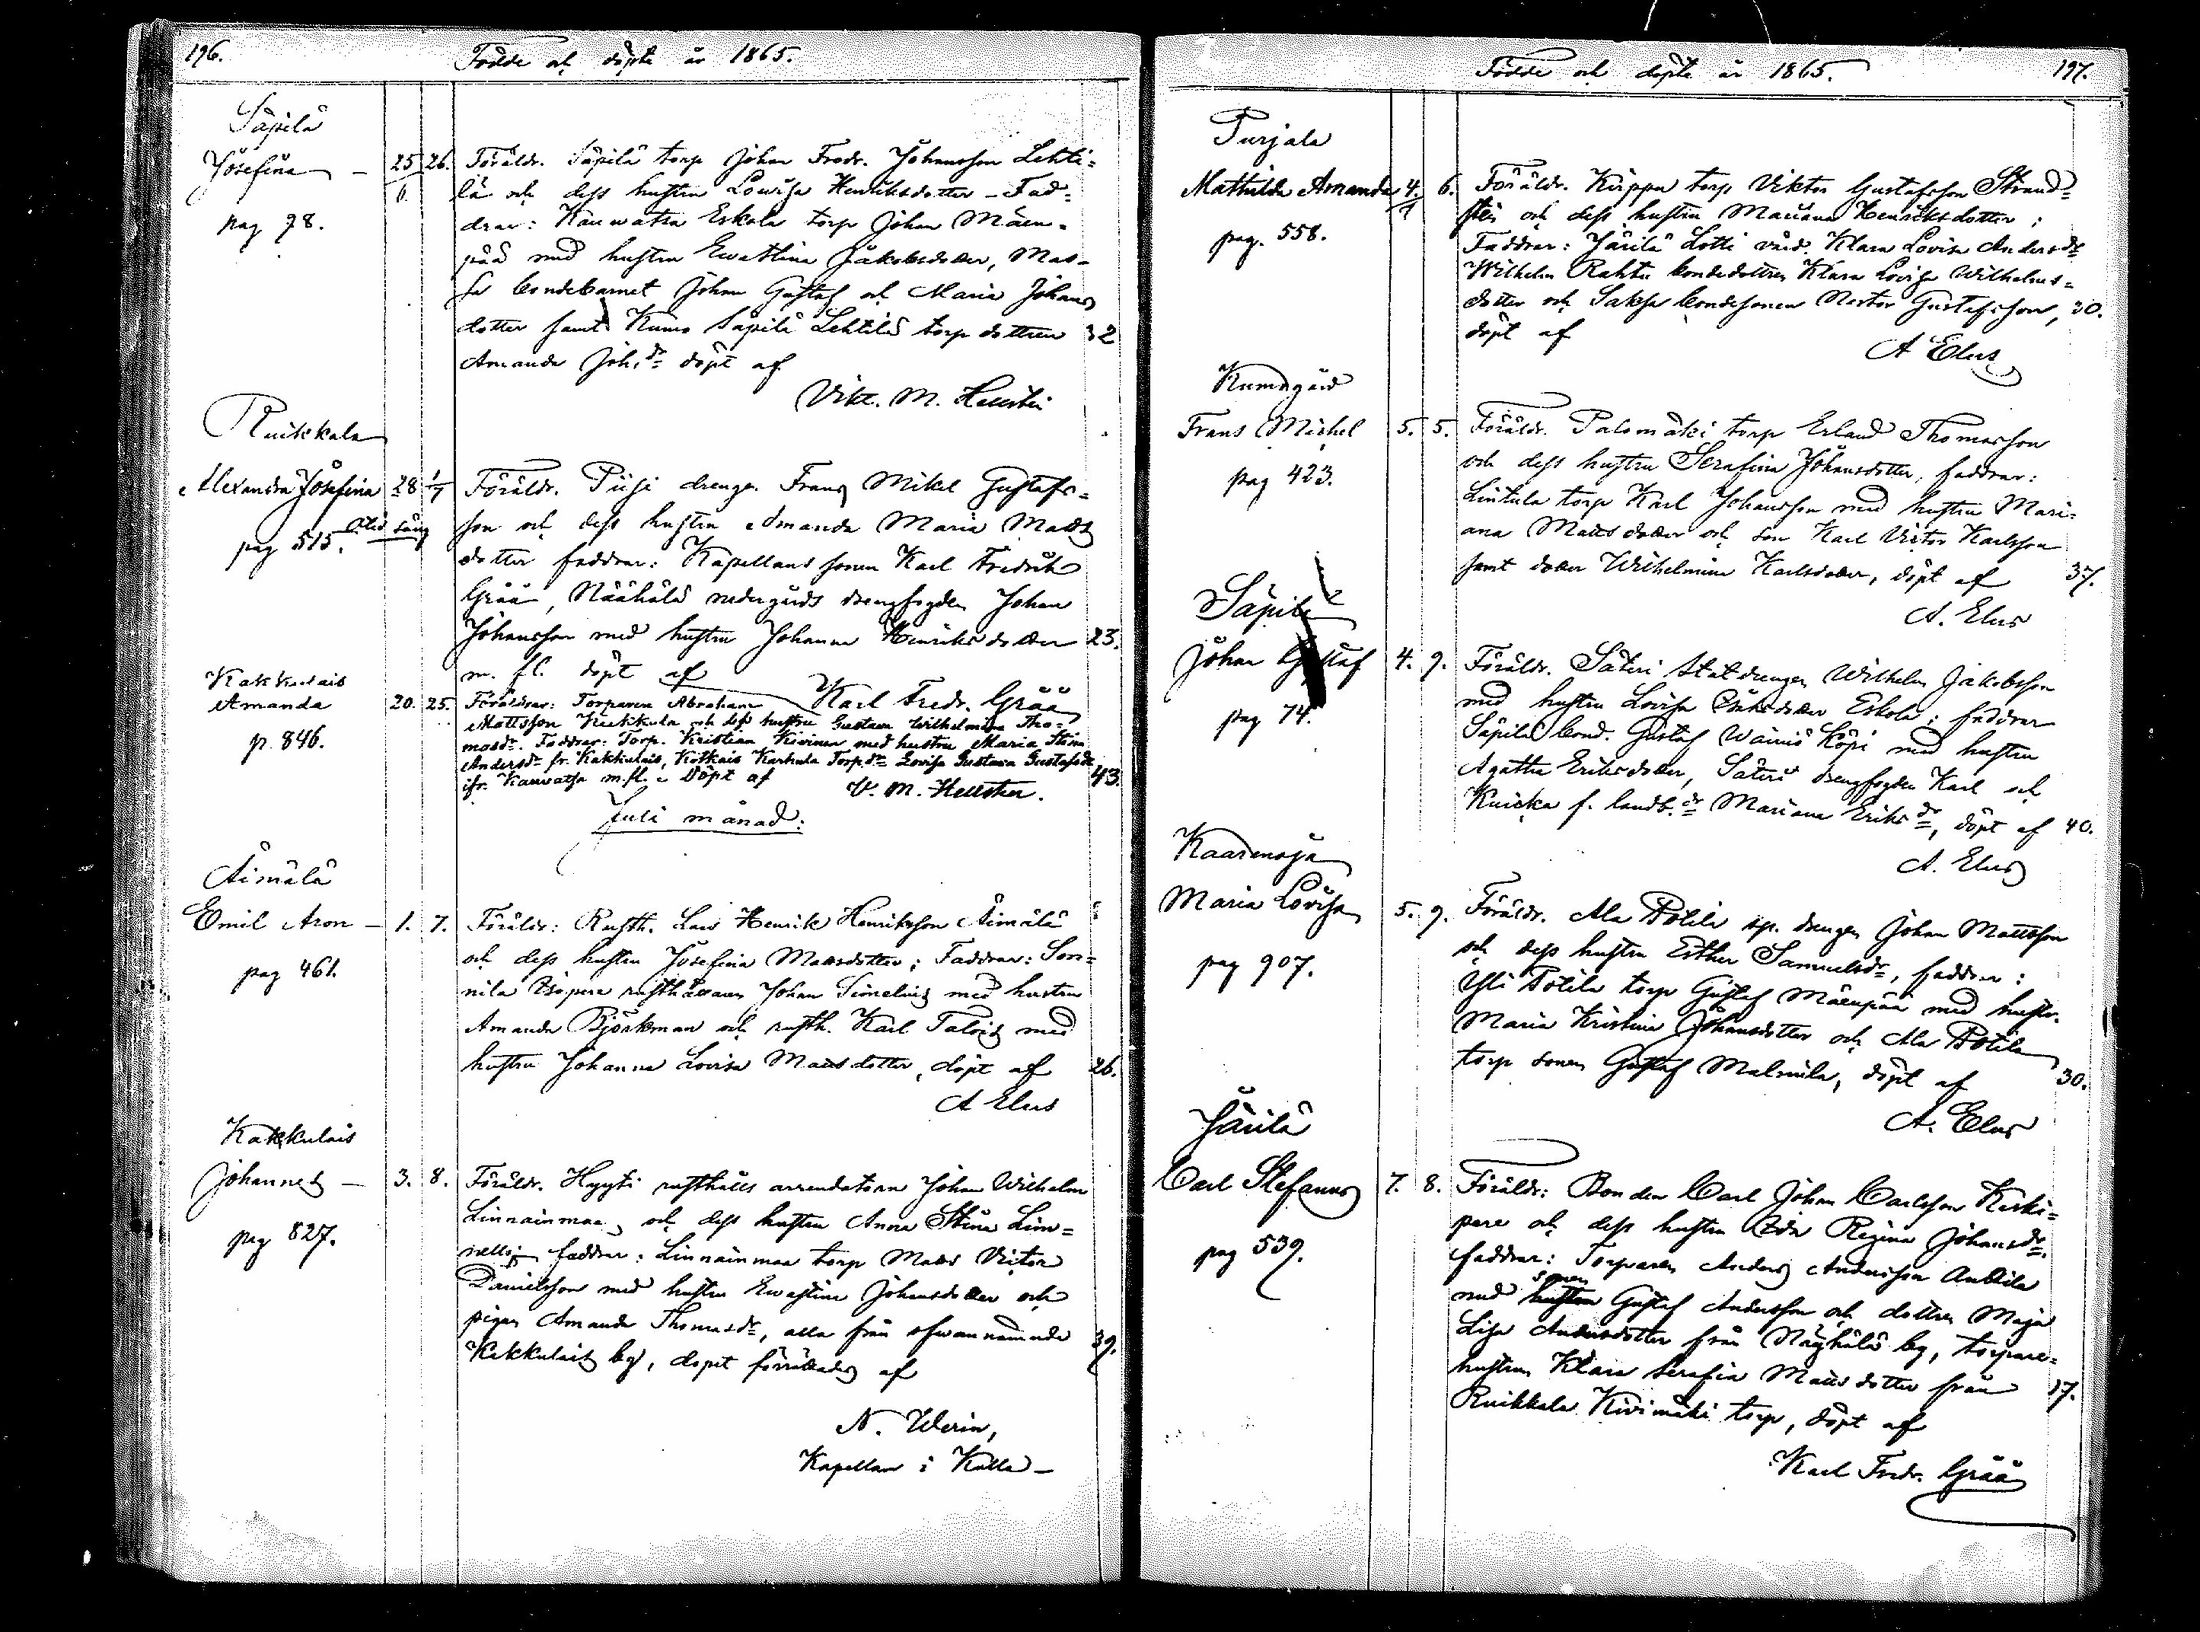 196.
Födde och döpte år 1865.
Säpilä
Josefina — 25/6 26. Föräldr. Säpilä torp Johan Fredr. Johansson Lehti-
lä och dess hustru Lowisa Henriksdotter – Fad-
pag 78.
drar: Kauwatsa Eskola torp Johan Mäen-
pää med hustru Ewastina Jakobsdotter,
bondebarnet Johan Gustaf och Maria Johans
dotter samt Kumo Säpilä Lehtilä torp dottren 32
Amanda Joh:dr döpt af
Vikt. M. Hellsten
Ruikkala
Alexandra Josefina 28 1/7 Föräldr. Piisi drengen Frans Mikel Gustafs-
son och dess hustru Amanda Maria Matts
pag 515.
dotter faddrar: Kapellans sonen Karl Fredrik
Grää, Näähälä nedergårds drengfogden Johan
Johansson med hustru Johanna Henriksdotter 23.
m. fl. döpt af
Karl Fredr. Grää
Kakkulais
Amanda 20. 25. Föräldrar: Torparen Abraham
Mattsson Kiekkula och dess hustru Gustava Wilhelmina Tho-
p. 846.
masdr. Faddrar: Torp. Kristian Kivinen med hustru Maria Stina
Andersdr fr. Kakkulais, Kotkais Karhula Torp.dr Lovisa Gustava Gustafsdr
ifr. Kauwatsa m.fl. Döpt af 43.
V. M. Hellsten.
Juli månad:
Äimälä
Emil Aron — 1. 7. Föräldr: Rusth. Lars Henrik Henriksson Äimälä
och dess hustru Josefina Mattsdotter; Faddrar: Son-
pag 461.
nila Isopere rusthållaren Johan Simelius med hustru
Amanda Björkman och rusth. Karl Talvis med
hustru Johanna Lovisa Mattsdotter, döpt af 26.
A Elus
Kakkulais
Johannes — 3. 8. Föräldr. Hyyti rusthålls arrendatorn Johan Wilhelm
Linnainmaa, och dess hustru Anna Stina
pag 827.
faddrar: Linnainmaa torp Matts Victor
Danielsson med hustru Ewastina Johansdotter och
pigan Amanda Thomasdr, alla från ofwannämnda 39.
Kakkulais by, dopet förrättads af
N. Werin,
Kapellan i Kulla –
Födde och döpte år 1865.
197.
Purjala
Mathilda Amanda 4/7 6. Föräldr. Kiippa torp Viktor Gustafsson Strand-
sten och dess hustru Mariana Henriksdotter;
pag. 558.
Faddrar: Järilä Lotti värd. Klara Lovisa Andersdr
Wilhelm Rahtu bondedottren Klara Lovisa Wilhelms-
dotter och Saksa bondesonen Nestor Gustafsson, 30.
döpt af
A Elus
Kumogård
Frans Michel 5. 5. Föräldr. Palomäki torp Erland Thomasson
och dess hustru Serafina Johansdotter, faddrar:
pag 423.
Lintula torp Karl Johansson med hustru Mari-
ana Mattsdotter och son Karl Victor Karlsson
samt dotter Wilhelmina Karlsdotter, döpt af 37.
A. Elus
Säpilä
Johan Gustaf 4. 9. Föräldr. Säteri Statdrengen Wilhelm Jakobsson
med hustru Lovisa Eskola; faddrar
pag 74.
Säpilä bond. Gustaf Wainio Köpi med hustru
Agatha Eriksdotter, Säteri drengfogden Karl och
f. landb.dr Mariana Eriksdr, döpt af 40.
A. Elus
Kaarenoja
Maria Lovisa 5. 9. Föräldr. Ala Potila sp. drengen Johan Mattsson
och dess hustru Esther Samuelsdr, faddrar:
pag 907.
Yli Potila torp Gustaf Mäenpää med hustr.
Maria Kristina Johansdotter och Ala Potila
torp sonen Gustaf Malmila, döpt af 30.
A. Elus
Järilä
Carl Stefanus 7. 8. Föräldr: Bonden Carl Johan Carlsson Keski-
pere och dess hustru Eda Regina Johansdr.
pag 539.
faddrar: Torparen Anders Andersson Anttila
med sonen Gustaf Andersson och dottren Maja
Lisa Andersdotter från Näyhälä by, torpare-
hustrun Klara Serafia Mattsdotter från 17.
Ruikkala Kivimäki torp, döpt af
Karl Fredr. Grää